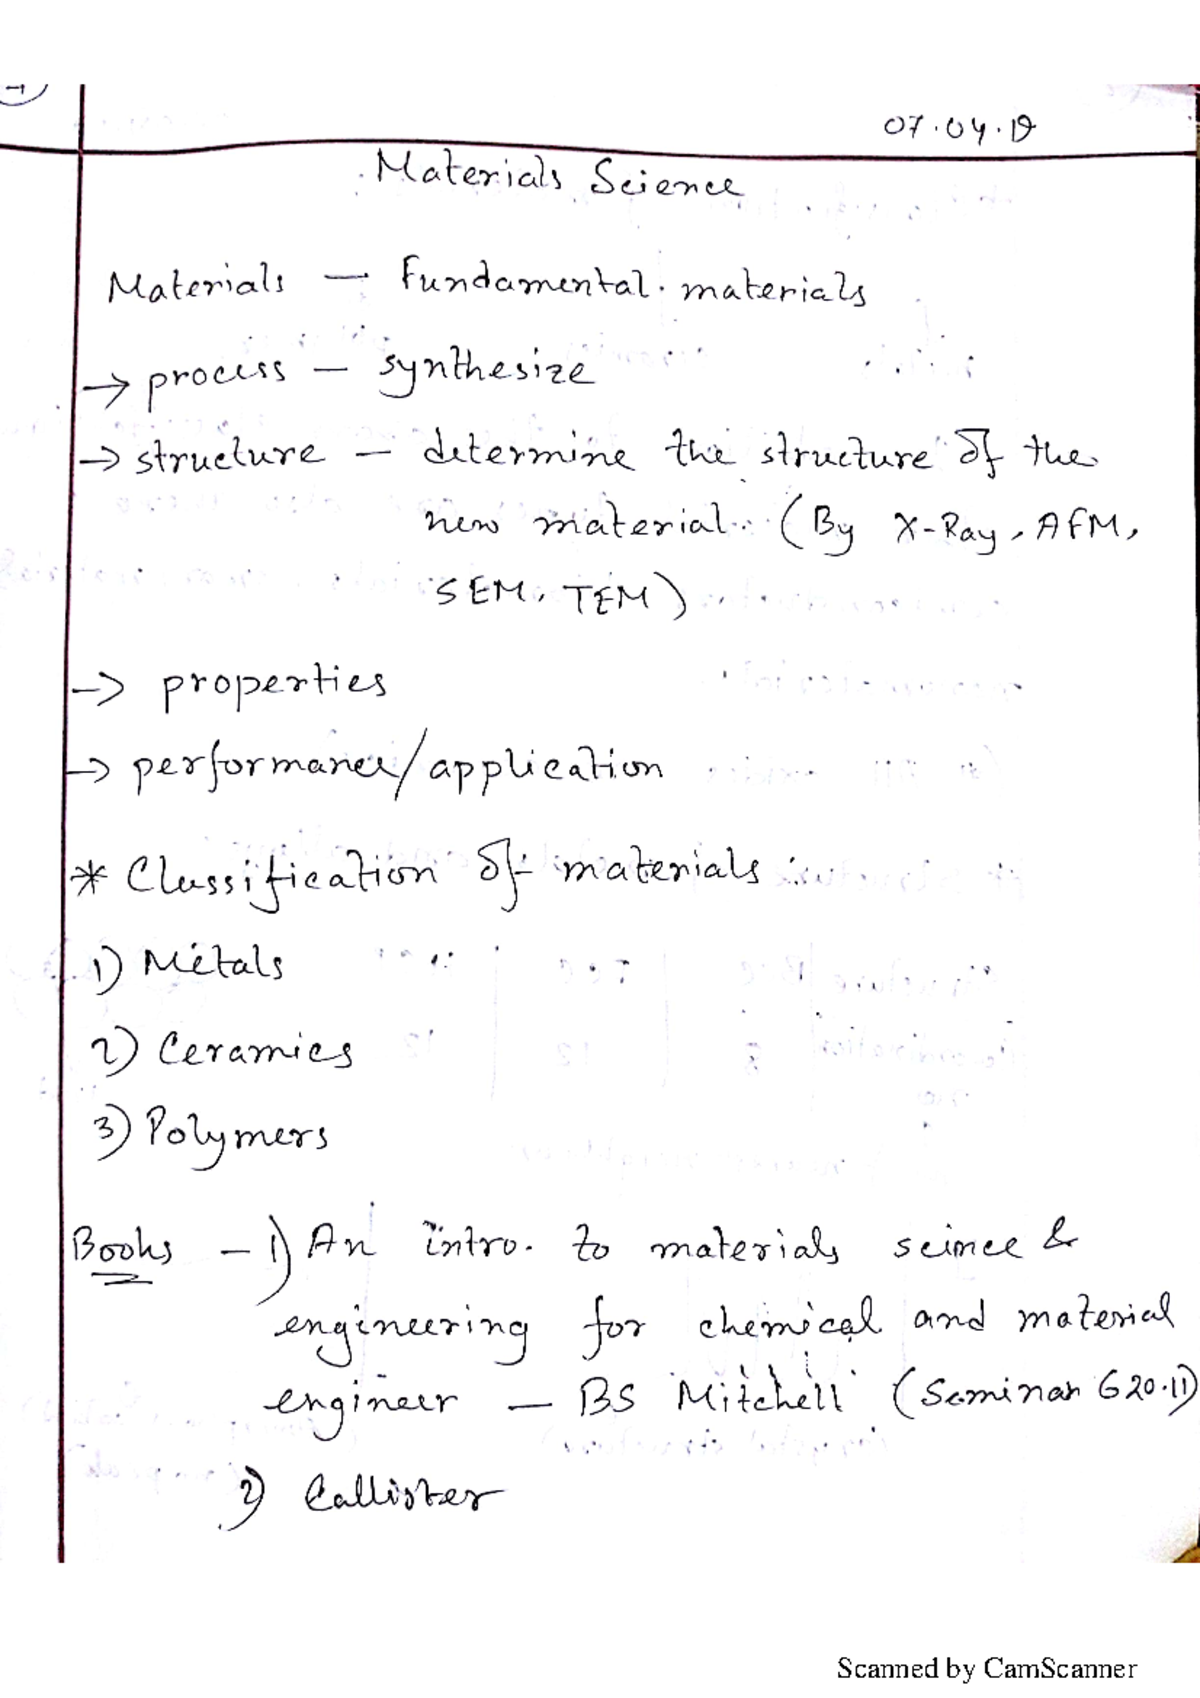 07.04.19
Materials Science
Materials — Fundamental materials
→ process — synthesize
→ structure — determine the structure of the
new material. (By X-Ray, AFM,
SEM, TEM)
→ properties
→ performance/application
* Classification of materials
1) Metals
2) Ceramics
3) Polymers
Books — 1) An intro. to materials science &
engineering for chemical and material
engineer — BS Mitchell (Seminar 620.11)
2) Callister
Scanned by CamScanner